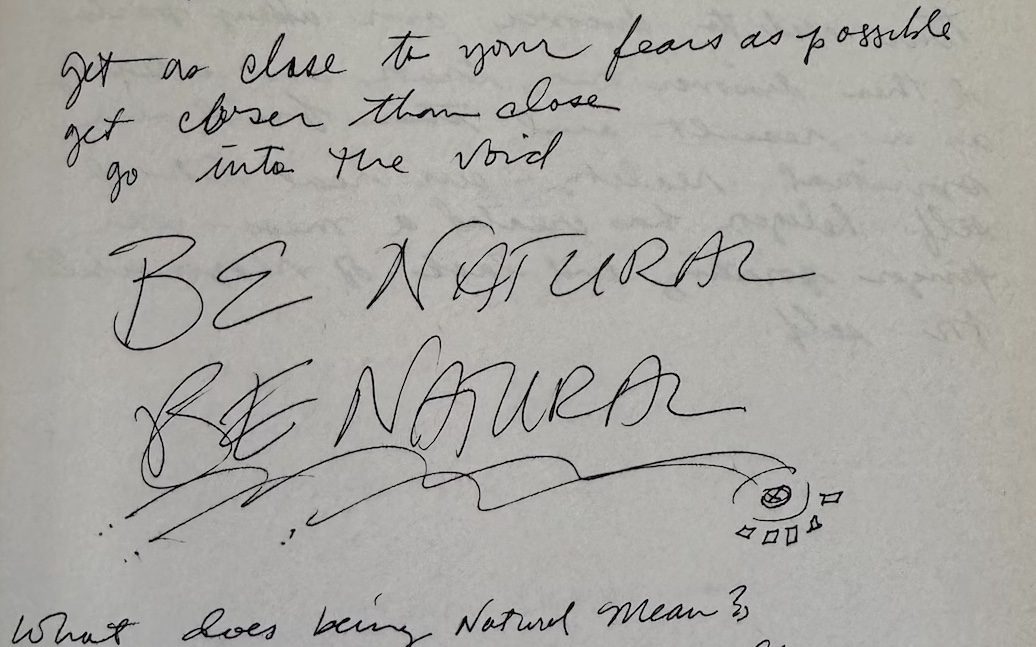 get as close to your fears as possible
get closer than close
go into the void
BE NATURAL
BE NATURAL
What does being Natural Mean?